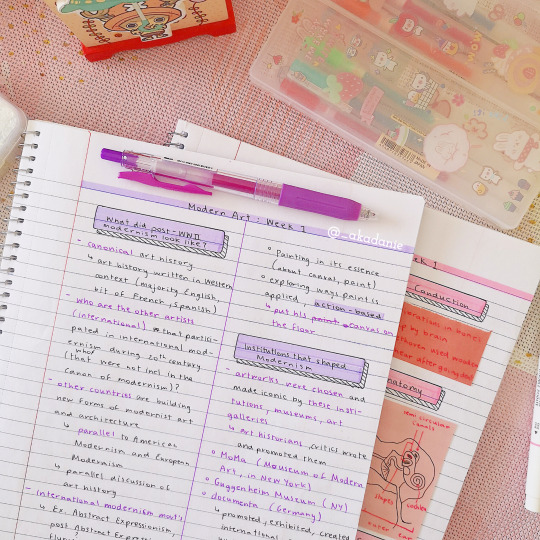 Modern Art : Week 1
@_-akadanie
What did post-WWII
modernism look like?
- canonical art history
↳ art history written in Western
context (majority English,
bit of French, Spanish)
- who are the other artists
(international) that partici-
pated in international mod-
ernism during 20th century
(that were not incl in the
who
canon of modernism)?
- other countries are building
new forms of modernist art
and architecture
↳ parallel to American
Modernism and European
Modernism
↳ parallel discussion of
art history
- international modernism mov'ts
↳ Ex. Abstract Expressionism,
post Abstract
Painting in its essence
(about canvas, paint)
exploring ways paint is
applied, action-based
↳ put his paint canvas on
the floor
Institutions that shaped
Modernism
- artworks were chosen and
made iconic by these insti-
tutions, museums, art
galleries
↳ Art historians, critics wrote
and promoted them
MoMA (Mouseum of Modern
Art, in New York)
Guggenheim Museum (NY)
documenta (Germany)
↳ promoted, exhibited, created
international
k 1
Conduction
in bones
by brain
used wooden
ear after going deaf
natomy
semi circular
canals
cochlea
outer ear